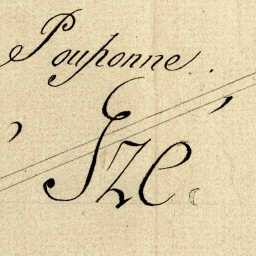 Pouponne.
Izé